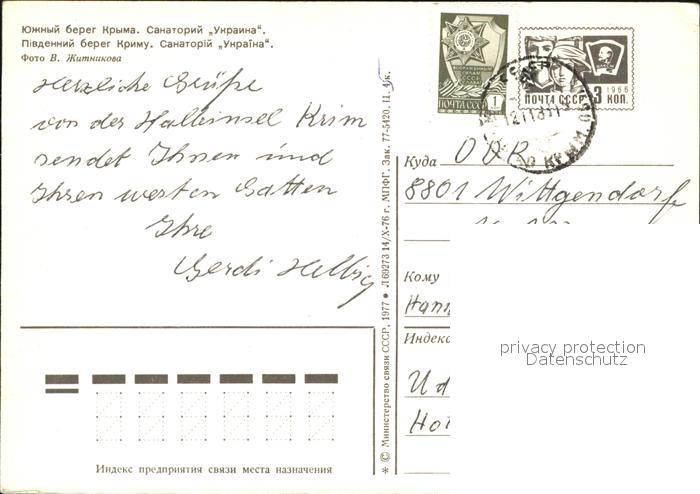 Южный берег Крыма. Санаторий „Украина“.
Південний берег Криму. Санаторій „Україна“.
Фото В. Житникова
Herzliche Grüße
von der Halbinsel Krim
sendet Ihnen und
Ihren werten Gatten
Ihre
Gerdi Helbig
* © Министерство связи СССР, 1977 • Л 69273 14/X-76 г. МПФГ. Зак. 77-5420. ц. 4 к.
ПОЧТА СССР 1
ПОЧТА СССР 3 КОП.
1966
Куда DDR
8801 Wittgendorf
Кому
Hann
Индекс
privacy protection
Datenschutz
Ud
Hot
Индекс предприятия связи места назначения